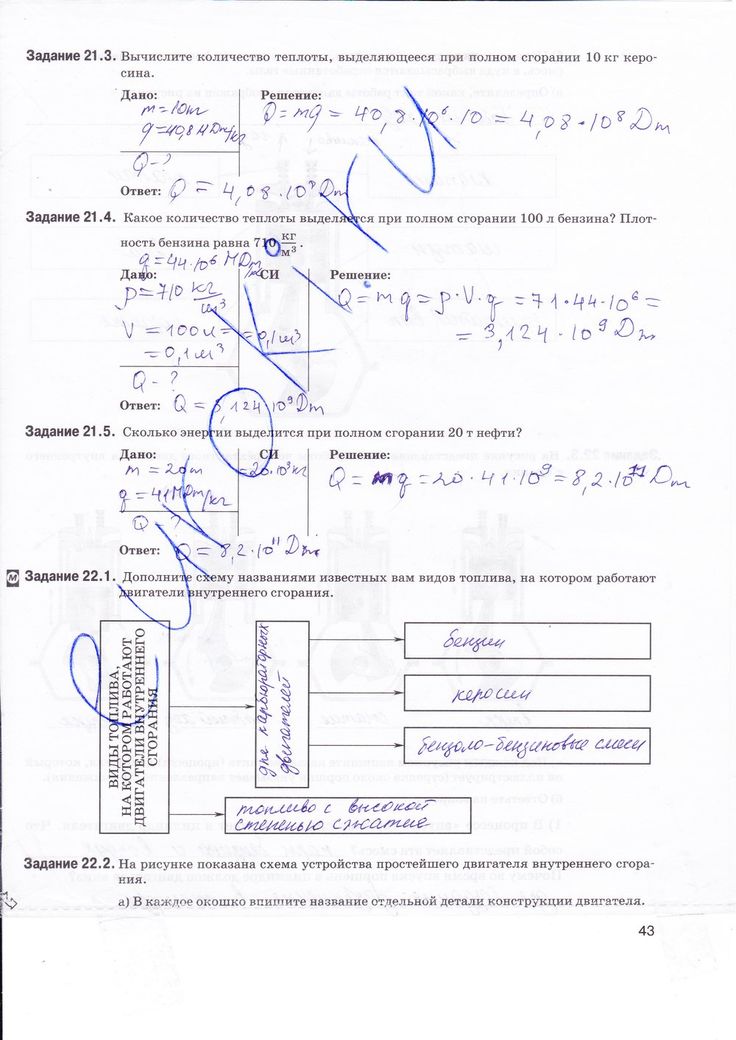 Задание 21.3. Вычислите количество теплоты, выделяющееся при полном сгорании 10 кг керо-
сина.
Дано: Решение:
m = 10кг Q = mq = 40,8·10⁶·10 = 4,08·10⁸ Дж
q = 40,8 МДж/кг
Q - ?
Ответ: Q = 4,08·10⁸ Дж
Задание 21.4. Какое количество теплоты выделяется при полном сгорании 100 л бензина? Плот-
ность бензина равна 710 кг/м³.
q = 44·10⁶ МДж/кг
Дано: СИ Решение:
ρ = 710 кг/м³ Q = mq = ρ·V·q = 71·44·10⁶ =
V = 100л = = 0,1м³ = 3,124·10⁹ Дж
= 0,1м³
Q - ?
Ответ: Q = 3,124·10⁹ Дж
Задание 21.5. Сколько энергии выделится при полном сгорании 20 т нефти?
Дано: СИ Решение:
m = 20т =20·10³кг Q = mq = 20·41·10⁹ = 8,2·10¹¹ Дж
q = 41 МДж/кг
Q - ?
Ответ: Q = 8,2·10¹¹ Дж
М Задание 22.1. Дополните схему названиями известных вам видов топлива, на котором работают
двигатели внутреннего сгорания.
ВИДЫ ТОПЛИВА,
НА КОТОРОМ РАБОТАЮТ
ДВИГАТЕЛИ ВНУТРЕННЕГО
СГОРАНИЯ
для карбюраторных
двигателей
бензин
керосин
бензоло-бензиновые смеси
топливо с высокой
степенью сжатие
Задание 22.2. На рисунке показана схема устройства простейшего двигателя внутреннего сгора-
ния.
а) В каждое окошко впишите название отдельной детали конструкции двигателя.
43